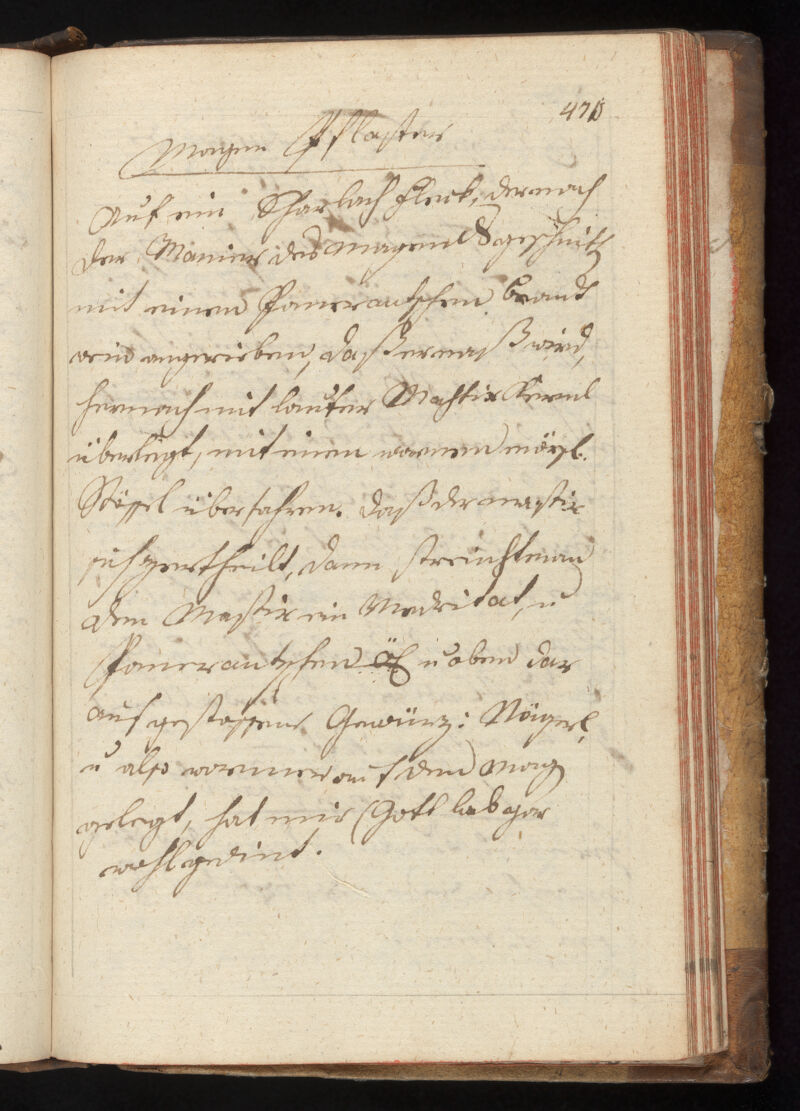 470
Magen Pflaster
Auf ein Scharlach Fleck, der nach
der Manier des Magens geschnit
mit einen Pomerantschen brand
wein angerieben, daß er naß wird,
hernach mit lauter Mastix Kernl
überlegt, mit einen warmen mörsl.
Stössel überfahren. daß der mastix
sich zertheilt, dann streicht man
den Mastix ein Medritat, u
Pomerantschen Öl u oben dar
auf gestossene Gewürz: Nägerl,
u also warmer auf den Mag
gelegt, hat mir Gott lob gar
wohl gedint.